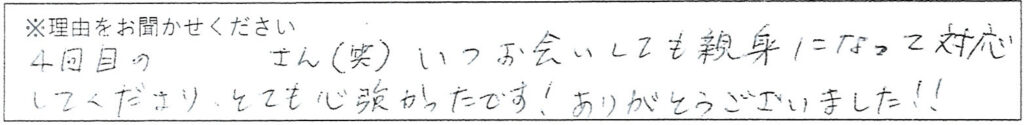 ※理由をお聞かせください
4回目の　　　さん(笑)いつお会いしても親身になって対応
してくださり、とても心強かったです!ありがとうございました!!